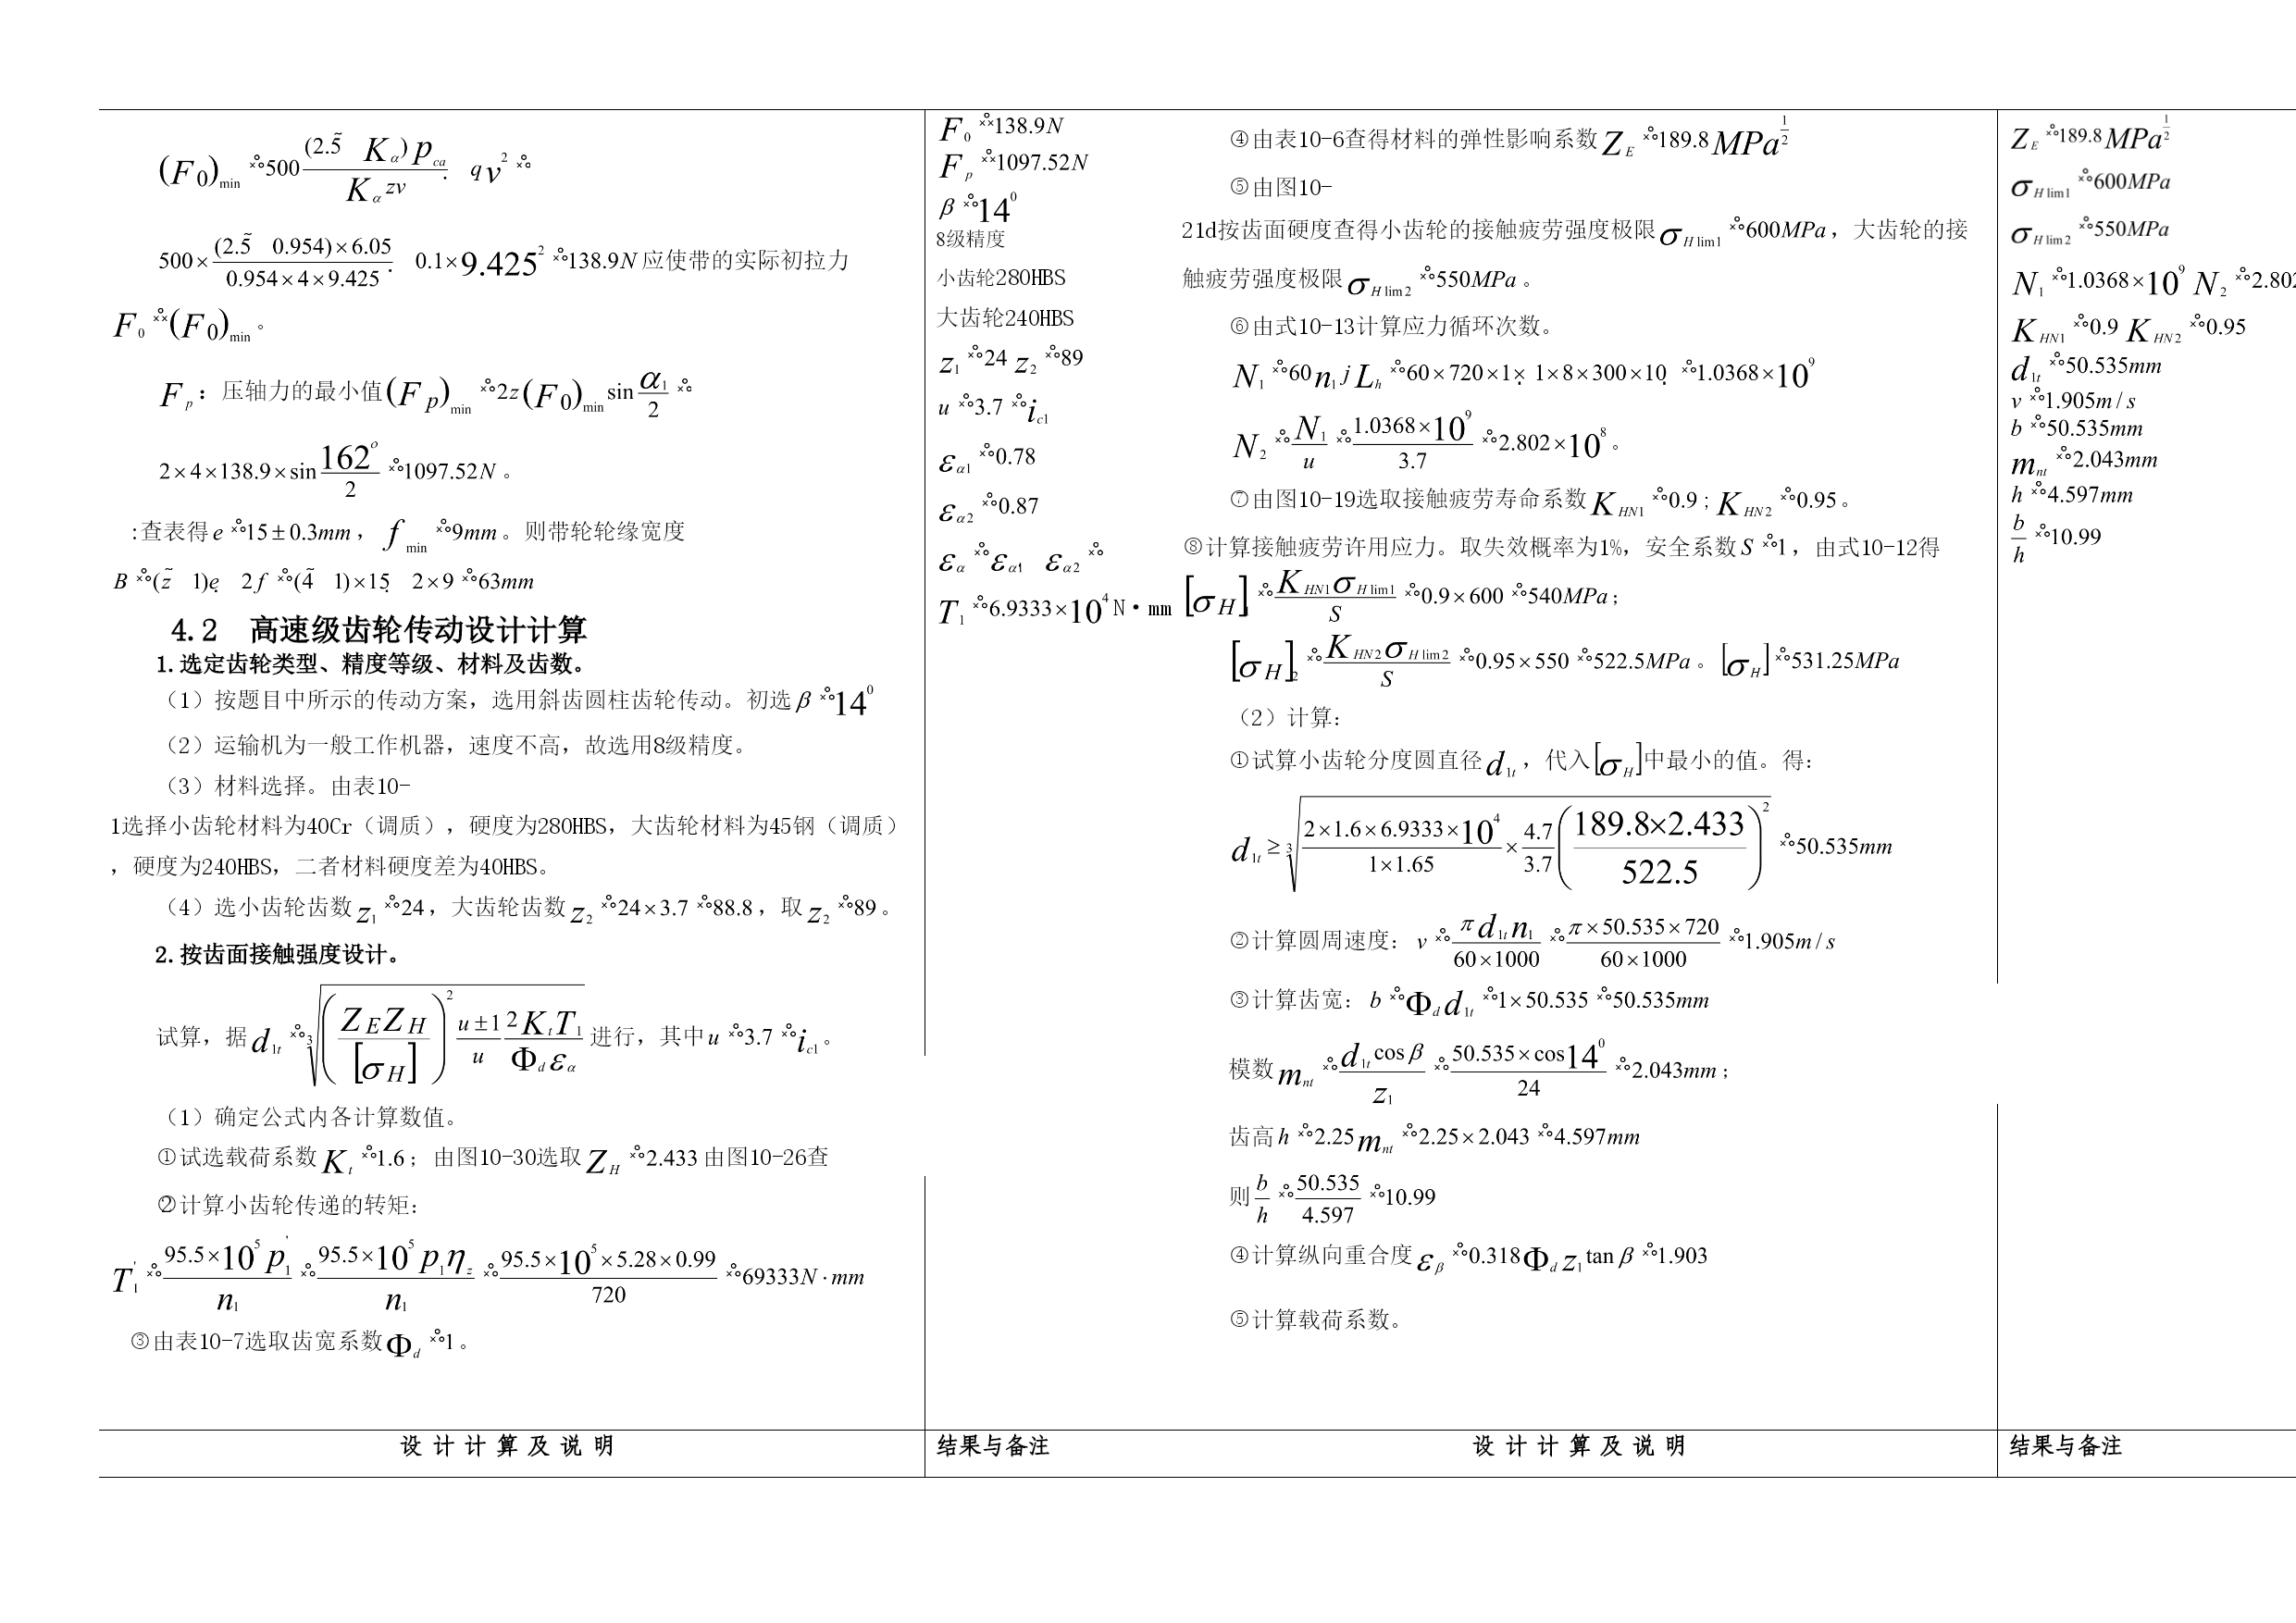 (F0)min =500 (2.5 Kα)pca / Kαzv . qv² =
500×(2.5 0.954)×6.05 / 0.954×4×9.425 . 0.1×9.425² =138.9N应使带的实际初拉力
F0 (F0)min。
Fp：压轴力的最小值(Fp)min =2z(F0)min sin α1/2 =
2×4×138.9×sin 162°/2 =1097.52N。
:查表得e=15±0.3mm，fmin=9mm。则带轮轮缘宽度
B=(z 1)e 2f=(4 1)×15 2×9=63mm
4.2 高速级齿轮传动设计计算
1.选定齿轮类型、精度等级、材料及齿数。
（1）按题目中所示的传动方案，选用斜齿圆柱齿轮传动。初选β=14⁰
（2）运输机为一般工作机器，速度不高，故选用8级精度。
（3）材料选择。由表10-
1选择小齿轮材料为40Cr（调质），硬度为280HBS，大齿轮材料为45钢（调质）
，硬度为240HBS，二者材料硬度差为40HBS。
（4）选小齿轮齿数z1=24，大齿轮齿数z2=24×3.7=88.8，取z2=89。
2.按齿面接触强度设计。
试算，据d1t=³√((ZEZH/[σH])² u±1/u 2KtT1/Φdεα)进行，其中u=3.7=ic1。
（1）确定公式内各计算数值。
①试选载荷系数Kt=1.6；由图10-30选取ZH=2.433由图10-26查
②计算小齿轮传递的转矩：
T1'=95.5×10⁵p1'/n1=95.5×10⁵p1ηz/n1=95.5×10⁵×5.28×0.99/720=69333N·mm
③由表10-7选取齿宽系数Φd=1。
设 计 计 算 及 说 明
F0 138.9N
Fp 1097.52N
β=14⁰
8级精度
小齿轮280HBS
大齿轮240HBS
z1=24 z2=89
u=3.7=ic1
εα1=0.78
εα2=0.87
εα=εα1 εα2=
T1=6.9333×10⁴N·mm
结果与备注
④由表10-6查得材料的弹性影响系数ZE=189.8MPa^1/2
⑤由图10-
21d按齿面硬度查得小齿轮的接触疲劳强度极限σHlim1=600MPa，大齿轮的接
触疲劳强度极限σHlim2=550MPa。
⑥由式10-13计算应力循环次数。
N1=60n1jLh=60×720×1×1×8×300×10=1.0368×10⁹
N2=N1/u=1.0368×10⁹/3.7=2.802×10⁸。
⑦由图10-19选取接触疲劳寿命系数KHN1=0.9；KHN2=0.95。
⑧计算接触疲劳许用应力。取失效概率为1%，安全系数S=1，由式10-12得
[σH]=KHN1σHlim1/S=0.9×600=540MPa；
[σH]2=KHN2σHlim2/S=0.95×550=522.5MPa。[σH]=531.25MPa
（2）计算：
①试算小齿轮分度圆直径d1t，代入[σH]中最小的值。得：
d1t≥³√(2×1.6×6.9333×10⁴/1×1.65×4.7/3.7(189.8×2.433/522.5)²)=50.535mm
②计算圆周速度：v=πd1tn1/60×1000=π×50.535×720/60×1000=1.905m/s
③计算齿宽：b=Φdd1t=1×50.535=50.535mm
模数mnt=d1tcosβ/z1=50.535×cos14⁰/24=2.043mm；
齿高h=2.25mnt=2.25×2.043=4.597mm
则b/h=50.535/4.597=10.99
④计算纵向重合度εβ=0.318Φdz1tanβ=1.903
⑤计算载荷系数。
设 计 计 算 及 说 明
ZE=189.8MPa^1/2
σHlim1=600MPa
σHlim2=550MPa
N1=1.0368×10⁹ N2=2.802
KHN1=0.9 KHN2=0.95
d1t=50.535mm
v=1.905m/s
b=50.535mm
mnt=2.043mm
h=4.597mm
b/h=10.99
结果与备注